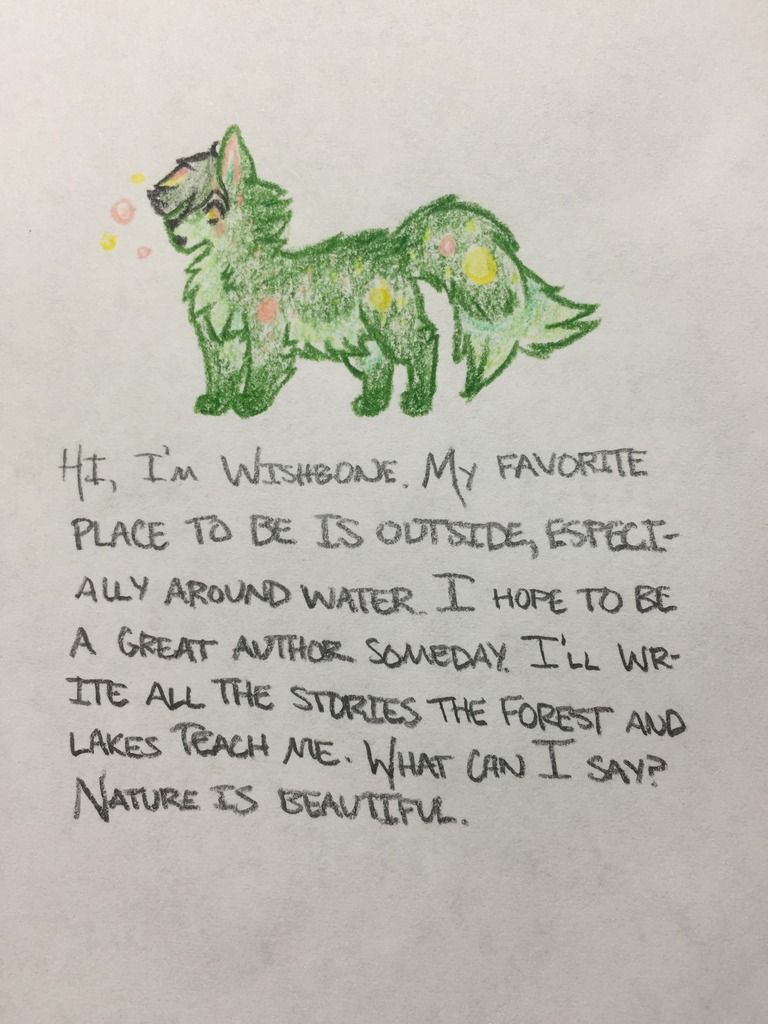 HI, I'M WISHBONE. MY FAVORITE
PLACE TO BE IS OUTSIDE, ESPECI-
ALLY AROUND WATER. I HOPE TO BE
A GREAT AUTHOR SOMEDAY. I'LL WR-
ITE ALL THE STORIES THE FOREST AND
LAKES TEACH ME. WHAT CAN I SAY?
NATURE IS BEAUTIFUL.